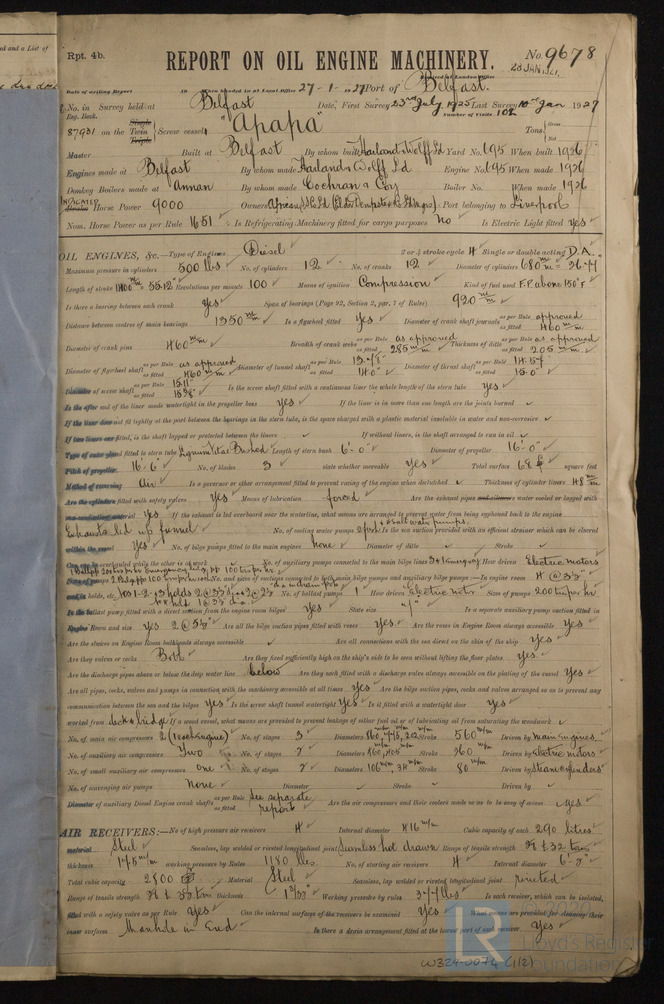 Rpt. 4b.
REPORT ON OIL ENGINE MACHINERY.
No. 9678
Received at London Office
28 JAN 1927
Date of writing Report 19 When handed in at Local Office 27-1-1927 Port of Belfast.
No. in Survey held at Belfast Date, First Survey 23rd July 1925 Last Survey 10th Jan 1927
Reg. Book. Number of Visits 102
87931 on the Single Twin Triple Screw vessel "Apapa" Tons Gross Net
Master Built at Belfast By whom built Harland & Wolff Ld Yard No. 695 When built 1926
Engines made at Belfast By whom made Harland & Wolff Ld Engine No. 695 When made 1926
Donkey Boilers made at Annan By whom made Cochran & Coy Boiler No. When made 1926
INDICATED Horse Power 9000 Owners Port belonging to Liverpool
Nom. Horse Power as per Rule 1651 Is Refrigerating Machinery fitted for cargo purposes No Is Electric Light fitted yes
OIL ENGINES, &c.—Type of Engines Diesel 2 or 4 stroke cycle 4 Single or double acting D.A.
Maximum pressure in cylinders 500 lbs No. of cylinders 12 No. of cranks 12 Diameter of cylinders 680 m/m = 26.77"
Length of stroke 1400 m/m 55.12" Revolutions per minute 100 Means of ignition Compression Kind of fuel used F.P. above 150° F
Is there a bearing between each crank Yes Span of bearings (Page 92, Section 2, par. 7 of Rules) 920 m/m
Distance between centres of main bearings 1350 m/m Is a flywheel fitted Yes Diameter of crank shaft journals as per Rule approved as fitted 460 m/m
Diameter of crank pins 460 m/m Breadth of crank webs as per Rule as approved as fitted 285 m/m Thickness of ditto as per Rule as approved as fitted 205 m/m
Diameter of flywheel shaft as per Rule as approved as fitted 460 m/m Diameter of tunnel shaft as per Rule as fitted 14.0" Diameter of thrust shaft as per Rule 14.57 as fitted 15.0"
Diameter of screw shaft as per Rule 15.11" as fitted Is the screw shaft fitted with a continuous liner the whole length of the stern tube yes
Is the after end of the liner made watertight in the propeller boss yes If the liner is in more than one length are the joints burned
If the liner does not fit tightly at the part between the bearings in the stern tube, is the space charged with a plastic material insoluble in water and non-corrosive
If two liners are fitted, is the shaft lapped or protected between the liners If without liners, is the shaft arranged to run in oil
Type of outer gland fitted to stern tube Lignum Vitae Bushed Length of stern bush 6'-0" Diameter of propeller 16'-0"
Pitch of propeller 16'6" No. of blades 3 state whether moveable Yes Total surface square feet
Method of reversing Air Is a governor or other arrangement fitted to prevent racing of the engine when declutched Thickness of cylinder liners 48 m/m
Are the cylinders fitted with safety valves Yes Means of lubrication forced Are the exhaust pipes and silencers water cooled or lagged with
non-conducting material Yes If the exhaust is led overboard near the waterline, what means are arranged to prevent water from being syphoned back to the engine
Exhausts led up funnel No. of cooling water pumps Is the sea suction provided with an efficient strainer which can be cleared
within the vessel Yes No. of bilge pumps fitted to the main engines None Diameter of ditto Stroke
Can one be overhauled while the other is at work No. of auxiliary pumps connected to the main bilge lines 3 + 1 Emergency How driven Electric motors
Sizes of pumps No. and sizes of suctions connected to both main bilge pumps and auxiliary bilge pumps:—In engine room 4 @ 3½"
and in holds, etc. No. of ballast pumps 1 How driven Electric motor Sizes of pumps 200 tons hr
Is the ballast pump fitted with a direct suction from the engine room bilges Yes State size Is a separate auxiliary pump suction fitted in
Engine Room and size Yes 2 @ 5½" Are all the bilge suction pipes fitted with roses Yes Are the roses in Engine Room always accessible Yes
Are the sluices on Engine Room bulkheads always accessible Are all connections with the sea direct on the skin of the ship Yes
Are they valves or cocks Both Are they fixed sufficiently high on the ship's side to be seen without lifting the floor plates Yes
Are the discharge pipes above or below the deep water line below Are they each fitted with a discharge valve always accessible on the plating of the vessel Yes
Are all pipes, cocks, valves and pumps in connection with the machinery accessible at all times Yes Are the bilge suction pipes, cocks and valves arranged so as to prevent any
communication between the sea and the bilges Yes Is the screw shaft tunnel watertight Yes Is it fitted with a watertight door Yes
worked from deck & bridge If a wood vessel, what means are provided to prevent leakage of either fuel oil or of lubricating oil from saturating the woodwork
No. of main air compressors 2 (1 each engine) No. of stages 3 Diameters 860, 775, 212 m/m Stroke 560 m/m Driven by main engines
No. of auxiliary air compressors Two No. of stages 2 Diameters Stroke 360 m/m Driven by electric motors
No. of small auxiliary air compressors one No. of stages 2 Diameters Stroke 80 m/m Driven by Steam cylinders
No. of scavenging air pumps None Diameter Stroke Driven by
Diameter of auxiliary Diesel Engine crank shafts as per Rule as fitted See separate report Are the air compressors and their coolers made so as to be easy of access yes
AIR RECEIVERS:—No. of high pressure air receivers 4 Internal diameter 416 m/m Cubic capacity of each 290 litres
material Steel Seamless, lap welded or riveted longitudinal joint Seamless hot drawn Range of tensile strength
thickness working pressure by Rules 1180 lbs No. of starting air receivers 4 Internal diameter 6'-3"
Total cubic capacity Material Steel Seamless, lap welded or riveted longitudinal joint riveted
Range of tensile strength thickness Working pressure by rules 377 lbs Is each receiver, which can be isolated,
fitted with a safety valve as per Rule Yes Can the internal surfaces of the receivers be examined Yes What means are provided for cleaning their
inner surfaces Manhole in End Is there a drain arrangement fitted at the lowest part of each receiver Yes
W324-0074 (1/2)
LR
Lloyd's Register
Foundation